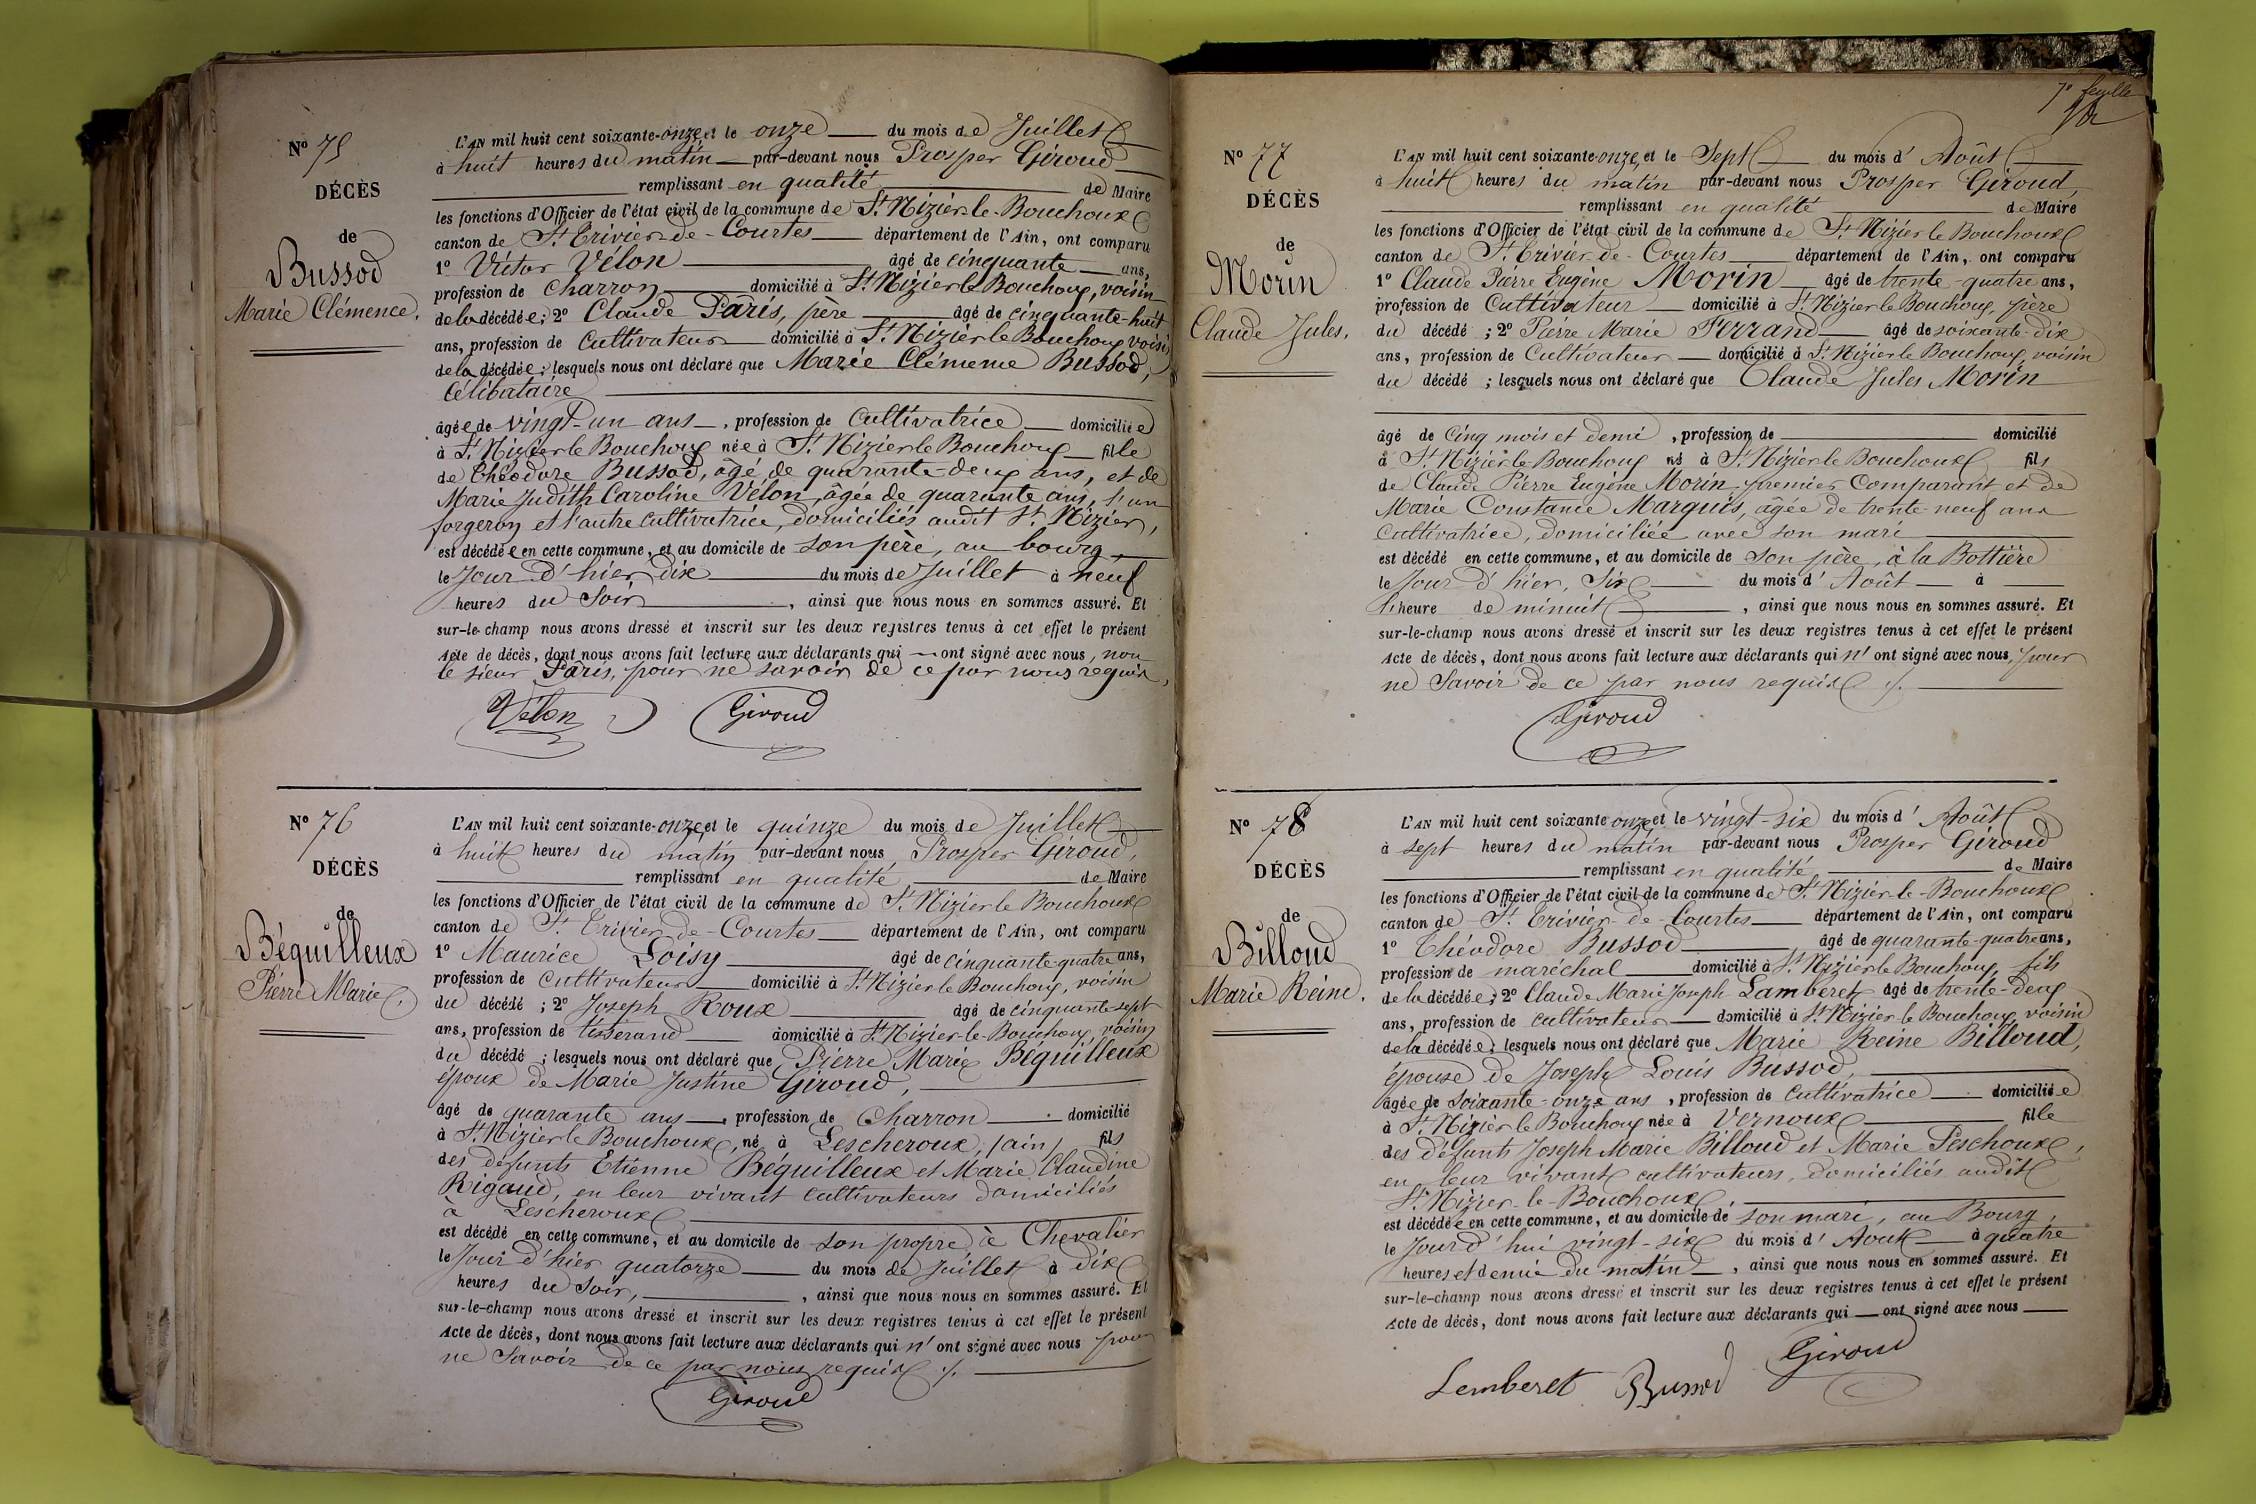 N° 75
DÉCÈS
de
Bussod
Marie Clémence.
L'AN mil huit cent soixante-onze, et le onze du mois de Juillet
à huit heures du matin par-devant nous Prosper Giroud
remplissant en qualité de Maire
les fonctions d'Officier de l'état civil de la commune de St Nizier-le-Bouchoux
canton de St Trivier-de-Courtes département de l'Ain, ont comparu
1° Victor Vélon âgé de cinquante ans,
profession de Charron domicilié à St Nizier le Bouchoux, voisin
de la décédée; 2° Claude Pâris, père âgé de cinquante-huit
ans, profession de Cultivateur domicilié à St Nizier le Bouchoux voisin
de la décédée; lesquels nous ont déclaré que Marie Clémence Bussod,
Célibataire
âgée de vingt-un ans, profession de Cultivatrice domiciliée
à St Nizier le Bouchoux née à St Nizier le Bouchoux fille
de Théodore Bussod, âgé de quarante-deux ans, et de
Marie Judith Caroline Vélon, âgée de quarante ans, l'un
forgeron et l'autre cultivatrice, domiciliés audit St Nizier,
est décédée en cette commune, et au domicile de son père, au bourg
le Jour d'hier dix du mois de Juillet à neuf
heures du Soir, ainsi que nous nous en sommes assuré. Et
sur-le-champ nous avons dressé et inscrit sur les deux registres tenus à cet effet le présent
Acte de décès, dont nous avons fait lecture aux déclarants qui ont signé avec nous, non
le sieur Pâris, pour ne savoir de ce par nous requis,
Vélon Giroud
N° 76
DÉCÈS
de
Béquilleux
Pierre Marie.
L'AN mil huit cent soixante-onze, et le quinze du mois de Juillet
à huit heures du matin par-devant nous Prosper Giroud,
remplissant en qualité de Maire
les fonctions d'Officier de l'état civil de la commune de St Nizier le Bouchoux
canton de St Trivier-de-Courtes département de l'Ain, ont comparu
1° Maurice Loisy âgé de cinquante-quatre ans,
profession de Cultivateur domicilié à St Nizier le Bouchoux, voisin
du décédé; 2° Joseph Roux âgé de cinquante-sept
ans, profession de tisserand domicilié à St Nizier-le-Bouchoux, voisin
du décédé; lesquels nous ont déclaré que Pierre Marie Béquilleux
époux de Marie Justine Giroud,
âgé de quarante ans, profession de Charron domicilié
à St Nizier le Bouchoux, né à Lescheroux, (ain) fils
des défunts Etienne Béquilleux et Marie Claudine
Rigaud, en leur vivant cultivateurs domiciliés
à Lescheroux
est décédé en cette commune, et au domicile de son propre, à Chevalier
le Jour d'hier quatorze du mois de Juillet à dix
heures du Soir, ainsi que nous nous en sommes assuré. Et
sur-le-champ nous avons dressé et inscrit sur les deux registres tenus à cet effet le présent
Acte de décès, dont nous avons fait lecture aux déclarants qui n'ont signé avec nous pour
ne Savoir de ce par nous requis ./.
Giroud
7e feuille
N° 77
DÉCÈS
de
Morin
Claude Jules.
L'AN mil huit cent soixante-onze, et le Sept du mois d'Août
à huit heures du matin par-devant nous Prosper Giroud,
remplissant en qualité de Maire
les fonctions d'Officier de l'état civil de la commune de St Nizier le Bouchoux
canton de St Trivier-de-Courtes département de l'Ain, ont comparu
1° Claude Pierre Eugène Morin âgé de trente-quatre ans,
profession de Cultivateur domicilié à St Nizier le Bouchoux, père
du décédé; 2° Pierre Marie Ferrand âgé de soixante-dix
ans, profession de Cultivateur domicilié à St Nizier le Bouchoux, voisin
du décédé; lesquels nous ont déclaré que Claude Jules Morin
âgé de Cinq mois et demi, profession de domicilié
à St Nizier-le-Bouchoux né à St Nizier le Bouchoux fils
de Claude Pierre Eugène Morin, premier Comparant et de
Marie Constance Marquis, âgée de trente-neuf ans
cultivatrice, domiciliée avec son mari
est décédé en cette commune, et au domicile de son père, à la Bottière
le Jour d'hier, Six du mois d'Août à
l'heure de minuit, ainsi que nous nous en sommes assuré. Et
sur-le-champ nous avons dressé et inscrit sur les deux registres tenus à cet effet le présent
Acte de décès, dont nous avons fait lecture aux déclarants qui n'ont signé avec nous, pour
ne Savoir de ce par nous requis ./.
Giroud
N° 78
DÉCÈS
de
Billoud
Marie Reine.
L'AN mil huit cent soixante onze, et le vingt-six du mois d'Août
à sept heures du matin par-devant nous Prosper Giroud
remplissant en qualité de Maire
les fonctions d'Officier de l'état civil de la commune de St Nizier-le-Bouchoux
canton de St Trivier-de-Courtes département de l'Ain, ont comparu
1° Théodore Bussod âgé de quarante-quatre ans,
profession de maréchal domicilié à St Nizier le Bouchoux, fils
de la décédée; 2° Claude Marie Joseph Lamberet âgé de trente-deux
ans, profession de cultivateur domicilié à St Nizier le Bouchoux, voisin
de la décédée; lesquels nous ont déclaré que Marie Reine Billoud,
épouse de Joseph Louis Bussod,
âgée de soixante-onze ans, profession de Cultivatrice domiciliée
à St Nizier le Bouchoux née à Vernoux fille
des défunts Joseph Marie Billoud et Marie Peschoux,
en leur vivant cultivateurs, domiciliés audit
St Nizier-le-Bouchoux,
est décédée en cette commune, et au domicile de son mari, au Bourg,
le Jour d'hui vingt-six du mois d'Aout à quatre
heures et demie du matin, ainsi que nous nous en sommes assuré. Et
sur-le-champ nous avons dressé et inscrit sur les deux registres tenus à cet effet le présent
Acte de décès, dont nous avons fait lecture aux déclarants qui ont signé avec nous
Lemberet Bussod Giroud